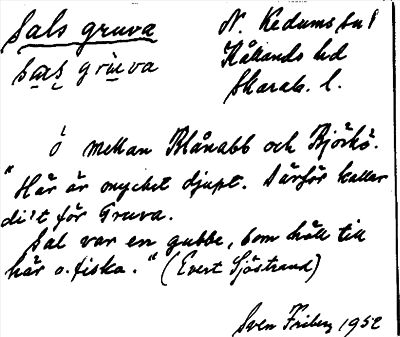 Sals gruva
N. Kedums sn
sa̤s grùva
Kållands hd
Skarab. l.
ö mellan Blånabb och Björkö.
"Här är mycket djupt. Därför kallar
di't för Gruva.
Sal var en gubbe, som höll till
här o. fiska." (Evert Sjöstrand)
Sven Friberg 1952